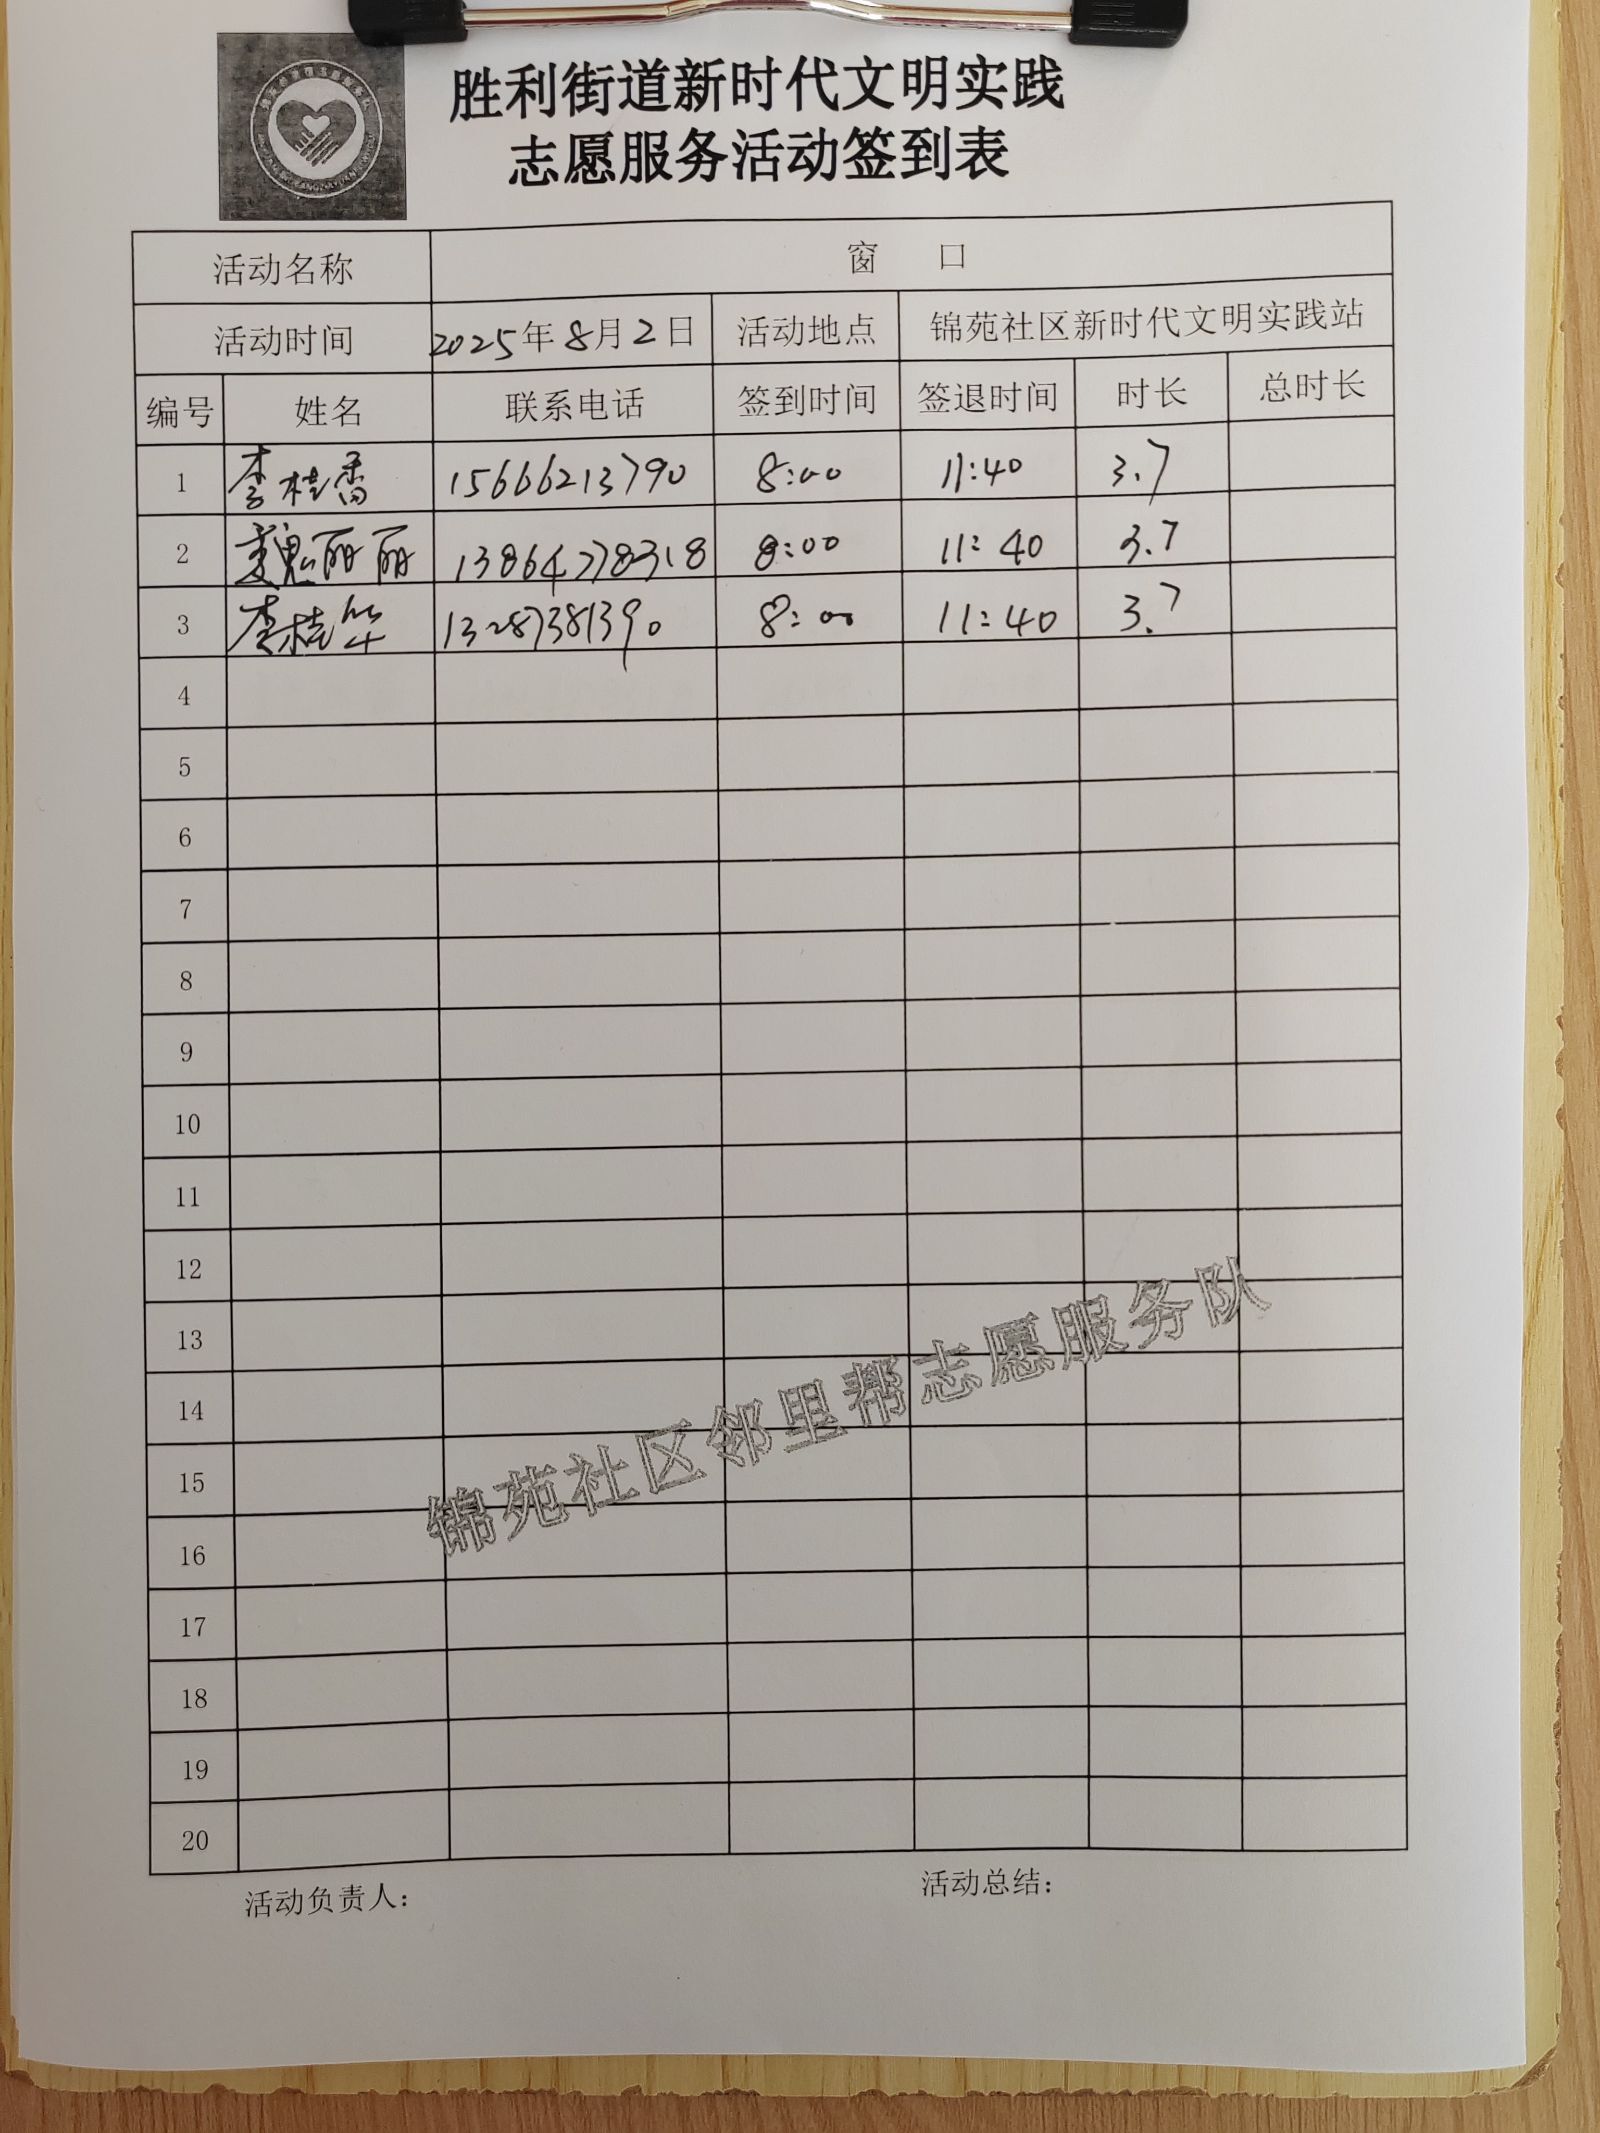 胜利街道新时代文明实践
志愿服务活动签到表
活动名称 窗 口
活动时间 2025年8月2日 活动地点 锦苑社区新时代文明实践站
编号 姓名 联系电话 签到时间 签退时间 时长 总时长
1 李桂香 15666213790 8:00 11:40 3.7
2 魏丽丽 13864778318 8:00 11:40 3.7
3 李桂华 13287381390 8:00 11:40 3.7
4
5
6
7
8
9
10
11
12
13
14
15
16
17
18
19
20
锦苑社区邻里帮志愿服务队
活动负责人: 活动总结: